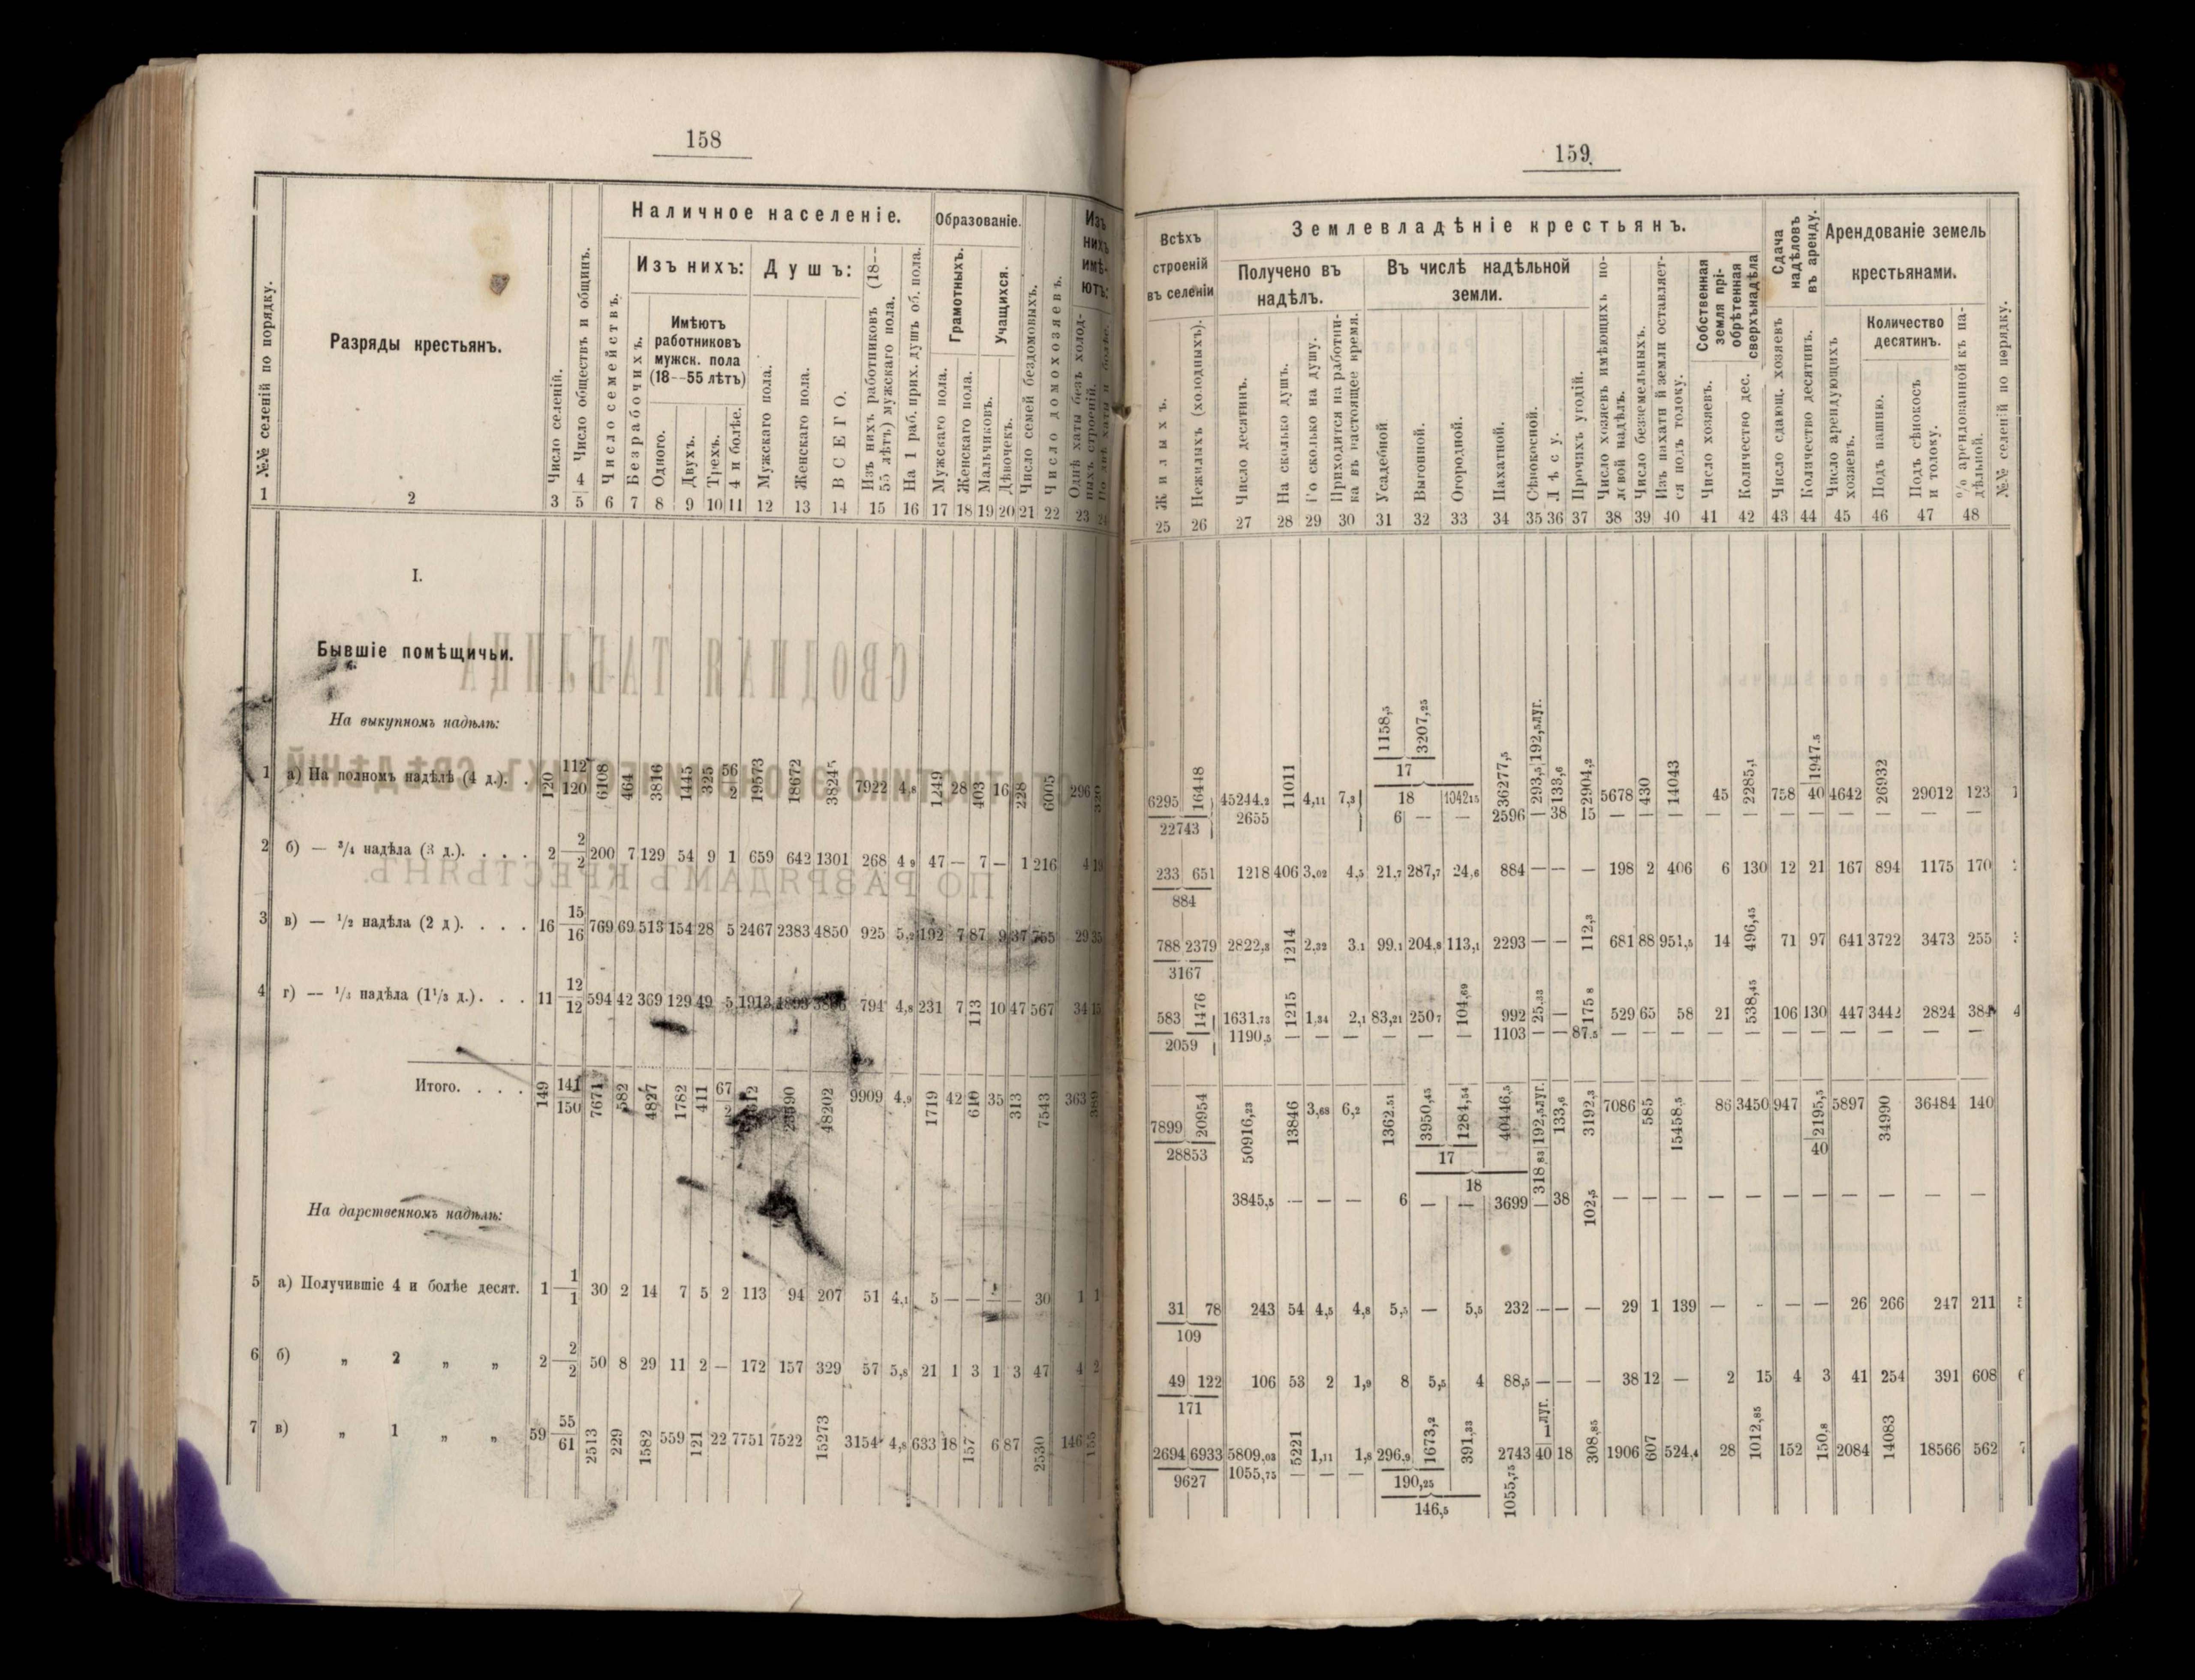 158
№№ селеній по порядку.
Разряды крестьянъ.
Число селеній.
Число обществъ и общинъ.
Наличное населеніе.
Число семействъ.
Изъ нихъ:
Безрабочихъ.
Имѣютъ
работниковъ
мужск. пола
(18--55 лѣтъ)
Одного.
Двухъ.
Трехъ.
4 и болѣе.
Душъ:
Мужскаго пола.
Женскаго пола.
ВСЕГО.
Изъ нихъ работниковъ (18--
55 лѣтъ) мужскаго пола.
На 1 раб. прих. душъ об. пола.
Образованіе.
Грамотныхъ.
Мужскаго пола.
Женскаго пола.
Учащихся.
Мальчиковъ.
Дѣвочекъ.
Число семей бездомовыхъ.
Число домохозяевъ.
Изъ
нихъ
имѣ-
ютъ:
Однѣ хаты безъ холод-
ныхъ строеній.
По двѣ хаты и болѣе.
1 2 3 4 5 6 7 8 9 10 11 12 13 14 15 16 17 18 19 20 21 22 23 24
I.
Бывшіе помѣщичьи.
На выкупномъ надѣлѣ:
1 а) На полномъ надѣлѣ (4 д.). . 120 112 120 6108 464 3816 1445 325 56 2 19573 18672 38245 7922 4,8 1249 28 403 16 228 6005 296 320
2 б) — ³/₄ надѣла (3 д.). . . . 2 2 2 200 7 129 54 9 1 659 642 1301 268 4 9 47 — 7 — 1 216 4 19
3 в) — ¹/₂ надѣла (2 д). . . . 16 15 16 769 69 513 154 28 5 2467 2383 4850 925 5,2 192 7 87 9 37 755 29 35
4 г) — ¹/₃ надѣла (1¹/₃ д.). . . 11 12 12 594 42 369 129 49 5 1913 794 4,8 231 7 113 10 47 567 34 15
Итого. . . . 149 141 150 7671 582 4827 1782 411 67 2 48202 9909 4,9 1719 42 610 35 313 7543 363 389
На дарственномъ надѣлѣ:
5 а) Получившіе 4 и болѣе десят. 1 1 1 30 2 14 7 5 2 113 94 207 51 4,1 5 — — — — 30 1 1
6 б) „ 2 „ „ 2 2 2 50 8 29 11 2 — 172 157 329 57 5,8 21 1 3 1 3 47 4 2
7 в) „ 1 „ „ 59 55 61 2513 229 1582 559 121 22 7751 7522 15273 3154 4,8 633 18 157 6 87 2530 146 155
159
Всѣхъ
строеній
въ селеніи
Жилыхъ.
Нежилыхъ (холодныхъ).
Землевладѣніе крестьянъ.
Получено въ
надѣлъ.
Число десятинъ.
На сколько душъ.
По сколько на душу.
Приходится на работни-
ка въ настоящее время.
Въ числѣ надѣльной
земли.
Усадебной
Выгонной.
Огородной.
Пахатной.
Сѣнокосной.
Лѣсу.
Прочихъ угодій.
Число хозяевъ имѣющихъ по-
левой надѣлъ.
Число безземельныхъ.
Изъ пахати й земли оставляет-
ся подъ толоку.
Собственная
земля прі-
обрѣтенная
сверхънадѣла
Число хозяевъ.
Количество дес.
Сдача
надѣловъ
въ аренду.
Число сдающ. хозяевъ
Количество десятинъ.
Арендованіе земель
крестьянами.
Число арендующихъ
хозяевъ.
Количество
десятинъ.
Подъ пашню.
Подъ сѣнокосъ
и толоку.
% арендованной къ на-
дѣльной.
№№ селеній по порядку.
25 26 27 28 29 30 31 32 33 34 35 36 37 38 39 40 41 42 43 44 45 46 47 48
6295 16448 45244,2 11011 4,11 7,3 1158,5 3207,25 17 18 104215 36277,5 293,5 192,5луг. 133,6 2904,2 5678 430 14043 45 2285,1 758 1947,5 40 4642 26932 29012 123 1
22743 2655 6 — — 2596 — 38 15 — — — — — — — — — — —
233 651 1218 406 3,02 4,5 21,7 287,7 24,6 884 — — — 198 2 406 6 130 12 21 167 894 1175 170
884
788 2379 2822,8 1214 2,32 3,1 99,1 204,8 113,1 2293 — — 112,3 681 88 951,5 14 496,45 71 97 641 3722 3473 255
3167
583 1476 1631,73 1215 1,34 2,1 83,21 2507 104,69 992 25,33 — 175 8 529 65 58 21 538,45 106 130 447 3442 2824 384 4
2059 1190,5 — — — — — — 1103 — — 87,5 — — — — — — — — — — —
7899 20954 50916,23 13846 3,68 6,2 1362,51 3950,45 1284,54 40446,5 318,83 192,5луг. 133,6 3192,3 7086 585 15458,5 86 3450 947 2195,5 40 5897 34990 36484 140
28853 17
18
3845,5 — — — 6 — — 3699 — 38 102,5 — — — — — — — — — — —
31 78 243 54 4,5 4,8 5,5 — 5,5 232 — — — 29 1 139 — - — — 26 266 247 211
109
49 122 106 53 2 1,9 8 5,5 4 88,5 — — — 38 12 — 2 15 4 3 41 254 391 608
171
2694 6933 5809,03 5221 1,11 1,8 296,9 1673,2 391,33 2743 1луг. 40 18 308,85 1906 607 524,4 28 1012,85 152 150,8 2084 14083 18566 562
9627 1055,75 — — — 190,25 1055,75
146,5